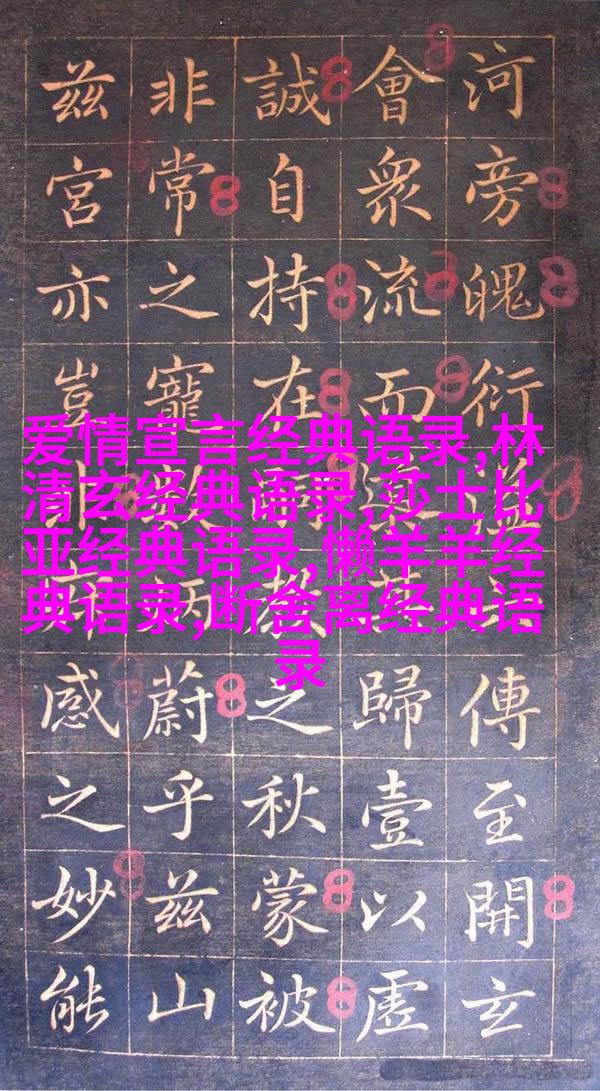 爱情宣言经典语录,林
清玄经典语录,莎士比
亚经典语录,懒羊羊经
典语录,断舍离经典语
录
河旁魄衍傳至開玄
會眾流而歸壹以虛
誠自持在之秋蒙被
非常之寵蔚乎茲山
茲宮亦豈感之妙能